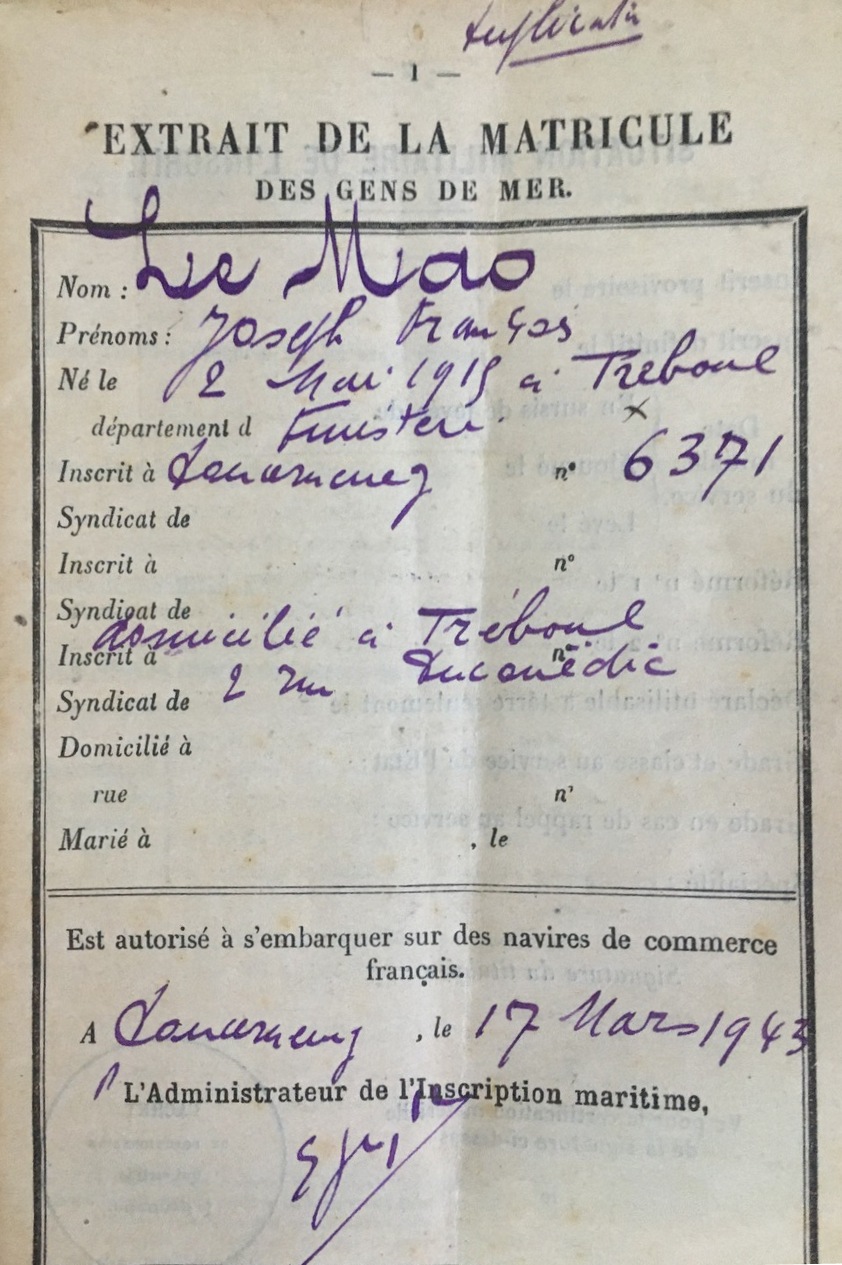 Duplicata
— 1 —
EXTRAIT DE LA MATRICULE
DES GENS DE MER.
Nom : Le Mao
Prénoms : Joseph François
Né le 2 Mai 1915 à Tréboul
département d Finistère
Inscrit à Douarnenez n° 6371
Syndicat de
Inscrit à n°
Syndicat de
domicilié à Tréboul
Inscrit à n°
2 rue
Syndicat de
Domicilié à
rue n°
Marié à , le
Est autorisé à s'embarquer sur des navires de commerce
français.
A Douarnenez , le 17 Mars 1943
L'Administrateur de l'Inscription maritime,